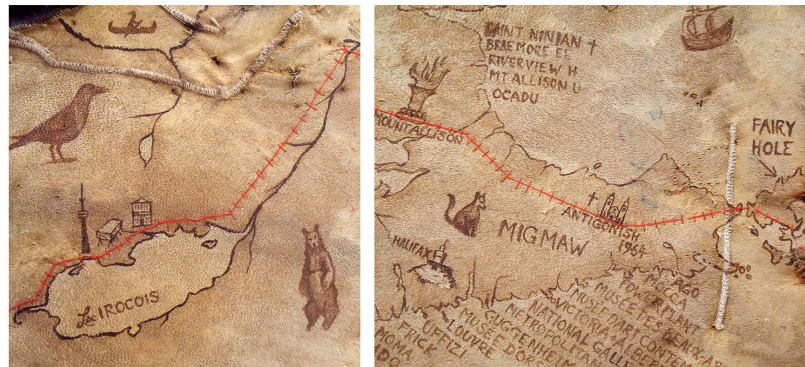 Lac IROCOIS
SAINT NINIAN †
BRAEMORE EE
RIVERVIEW H
MT ALLISON U
OCADU
MOUNT ALLISON
FAIRY
HOLE
ANTIGONISH
1964
MIGMAW
HALIFAX
AGO
MECCA
POWER PLANT
MUSÉE DES BEAUX-AR
MUSÉE D'ART CONTEM
VICTORIA + ALBER
NATIONAL GALLE
METROPOLITAN
GUGGENHEIM
MUSÉE D'ORS
LOUVRE
UFFIZI
FRICK
MOMA